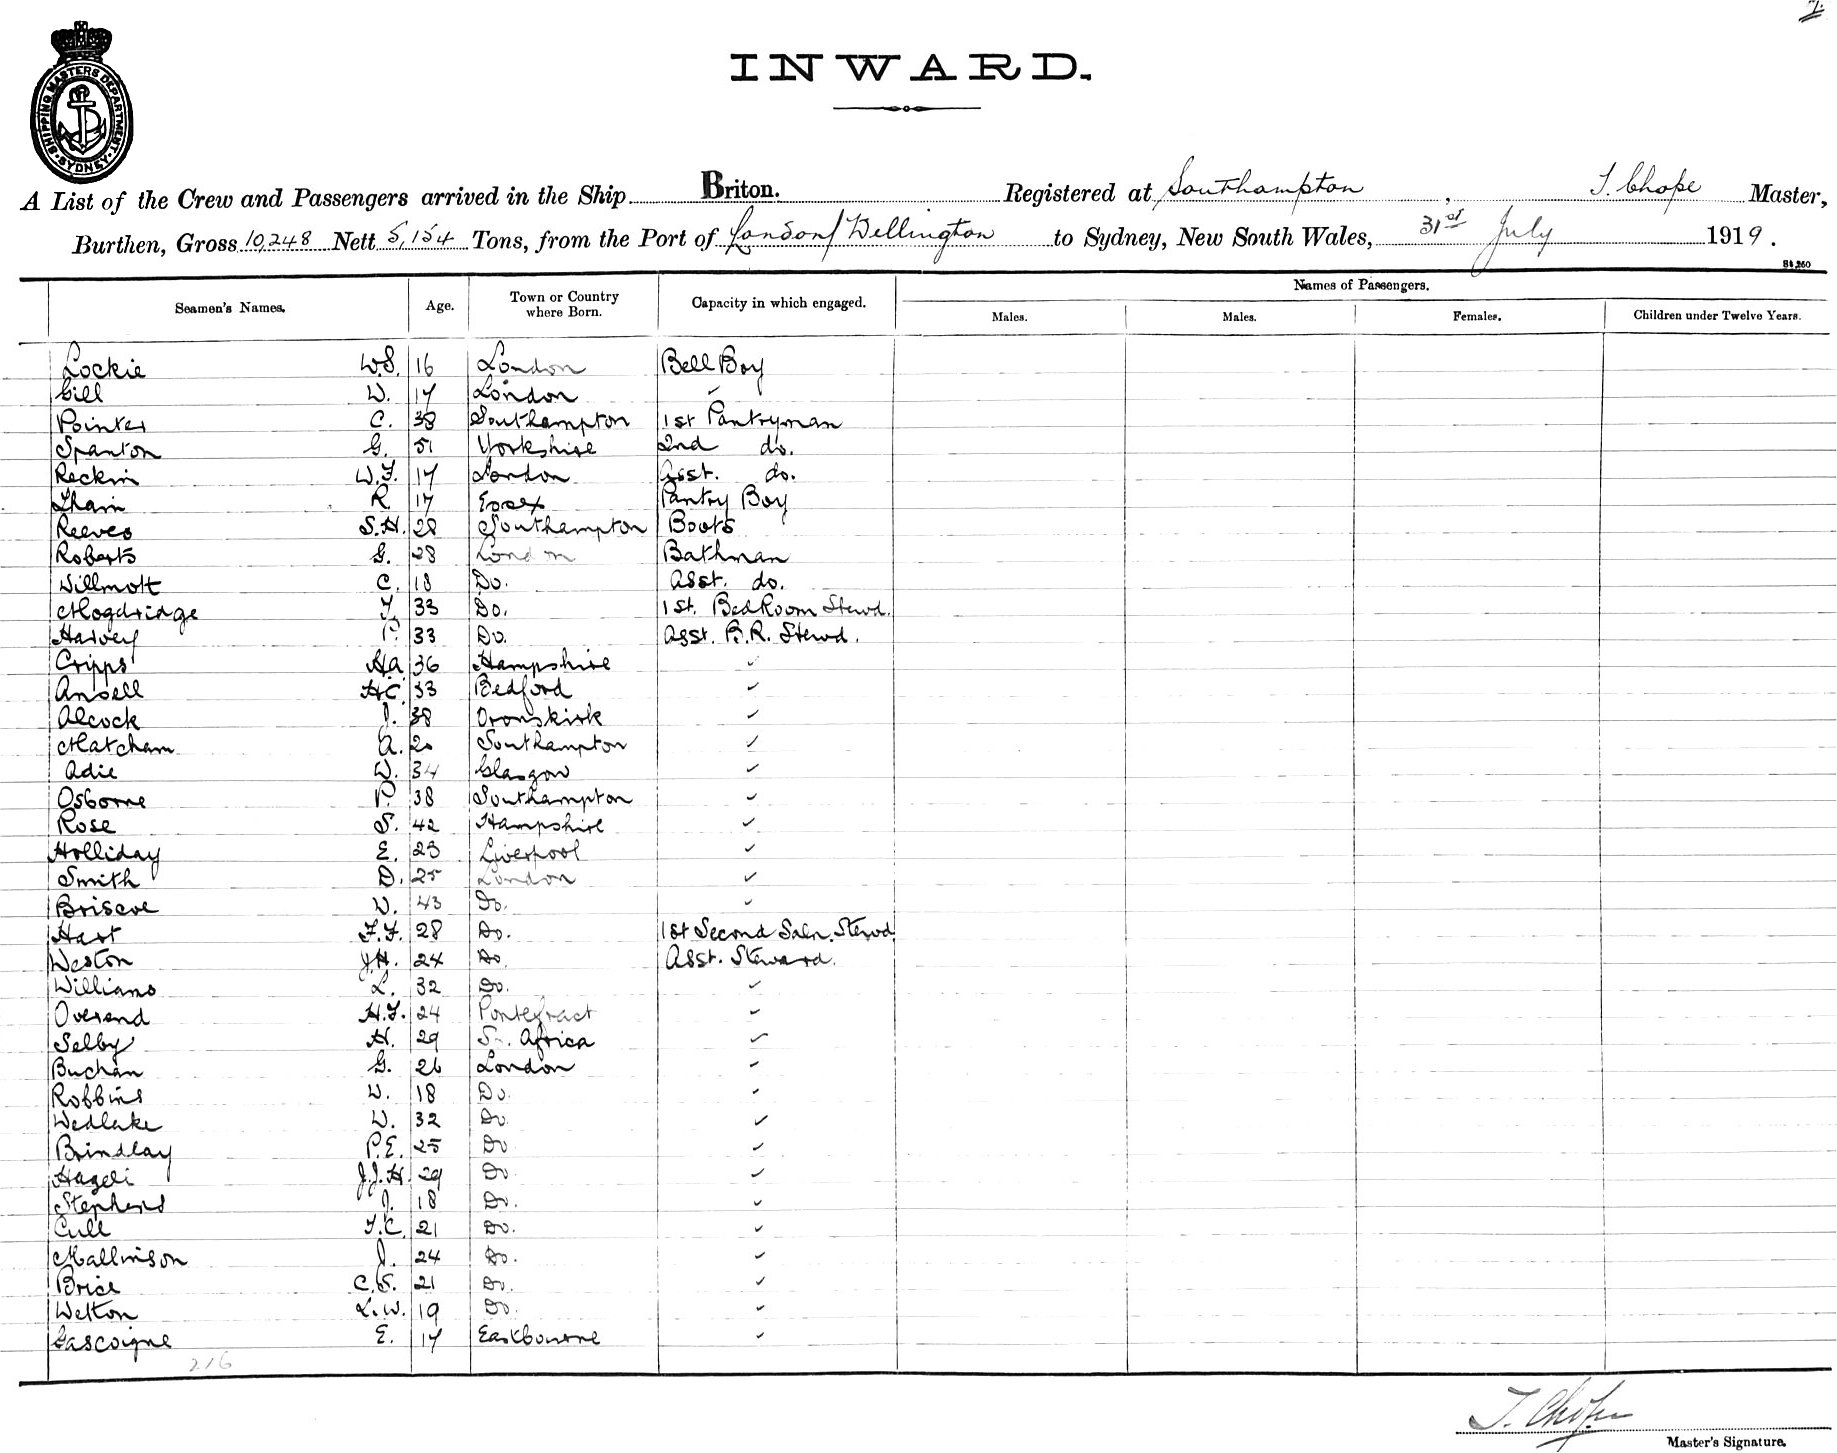 SHIPPING MASTERS DEPARTMENT
SYDNEY
INWARD.
A List of the Crew and Passengers arrived in the Ship Briton. Registered at Southampton, T. Chope Master,
Burthen, Gross 10,248 Nett 5,154 Tons, from the Port of London/Wellington to Sydney, New South Wales, 31st July 1919.
Seamen's Names. Age. Town or Country where Born. Capacity in which engaged. Names of Passengers.
Males. Males. Females. Children under Twelve Years.
Lockie W.S. 16 London Bell Boy
Gill W. 17 London ✓
Pointer C. 38 Southampton 1st Pantryman
Spanton G. 51 Yorkshire 2nd do.
Reckin W.F. 17 London Asst. do.
Tham R 17 Essex Pantry Boy
Reeves S.H. 28 Southampton Boots
Roberts G. 28 London Bathman
Willmott C. 18 Do. Asst. do.
Mogdridge F. 33 Do. 1st. BedRoom Stewd.
Harvey P. 33 Do. Asst. B.R. Stewd.
Cripps H.A. 36 Hampshire ✓
Ansell H.C. 33 Bedford ✓
Alcock J. 38 Ormskirk ✓
Matcham A. 20 Southampton ✓
Adie W. 34 Glasgow ✓
Osborne P. 38 Southampton ✓
Rose S. 42 Hampshire ✓
Holliday E. 23 Liverpool ✓
Smith D. 25 London ✓
Briscoe W. 43 Do. ✓
Hart F.F. 28 Do. 1st Second Saln. Stewd.
Weston J.H. 24 Do. Asst. Steward.
Williams L. 32 Do. ✓
Overend H.F. 24 Pontefract ✓
Selby H. 29 S. Africa ✓
Buchan G. 26 London ✓
Robbins W. 18 Do. ✓
Wedlake W. 32 Do. ✓
Brindlay P.E. 25 Do ✓
Hageli J.J.H. 29 Do. ✓
Stephens J. 18 Do. ✓
Cull F.C. 21 Do. ✓
Mallinson J. 24 Do. ✓
Brice C.S. 21 Do. ✓
Welton L.W. 19 Do. ✓
Gascoigne E. 17 Eastbourne ✓
216
T. Chope
Master's Signature.